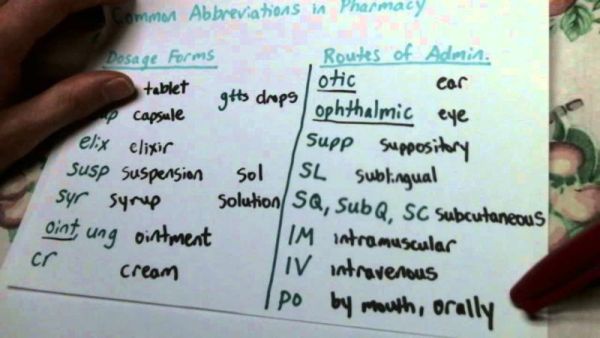 Common Abbreviations in Pharmacy
Dosage Forms
tablet
gtts drops
p capsule
elix elixir
susp suspension
sol
syr syrup
solution
oint, ung ointment
cr cream
Routes of Admin.
otic ear
ophthalmic eye
supp suppository
SL sublingual
SQ, SubQ, SC subcutaneous
IM intramuscular
IV intravenous
PO by mouth, orally